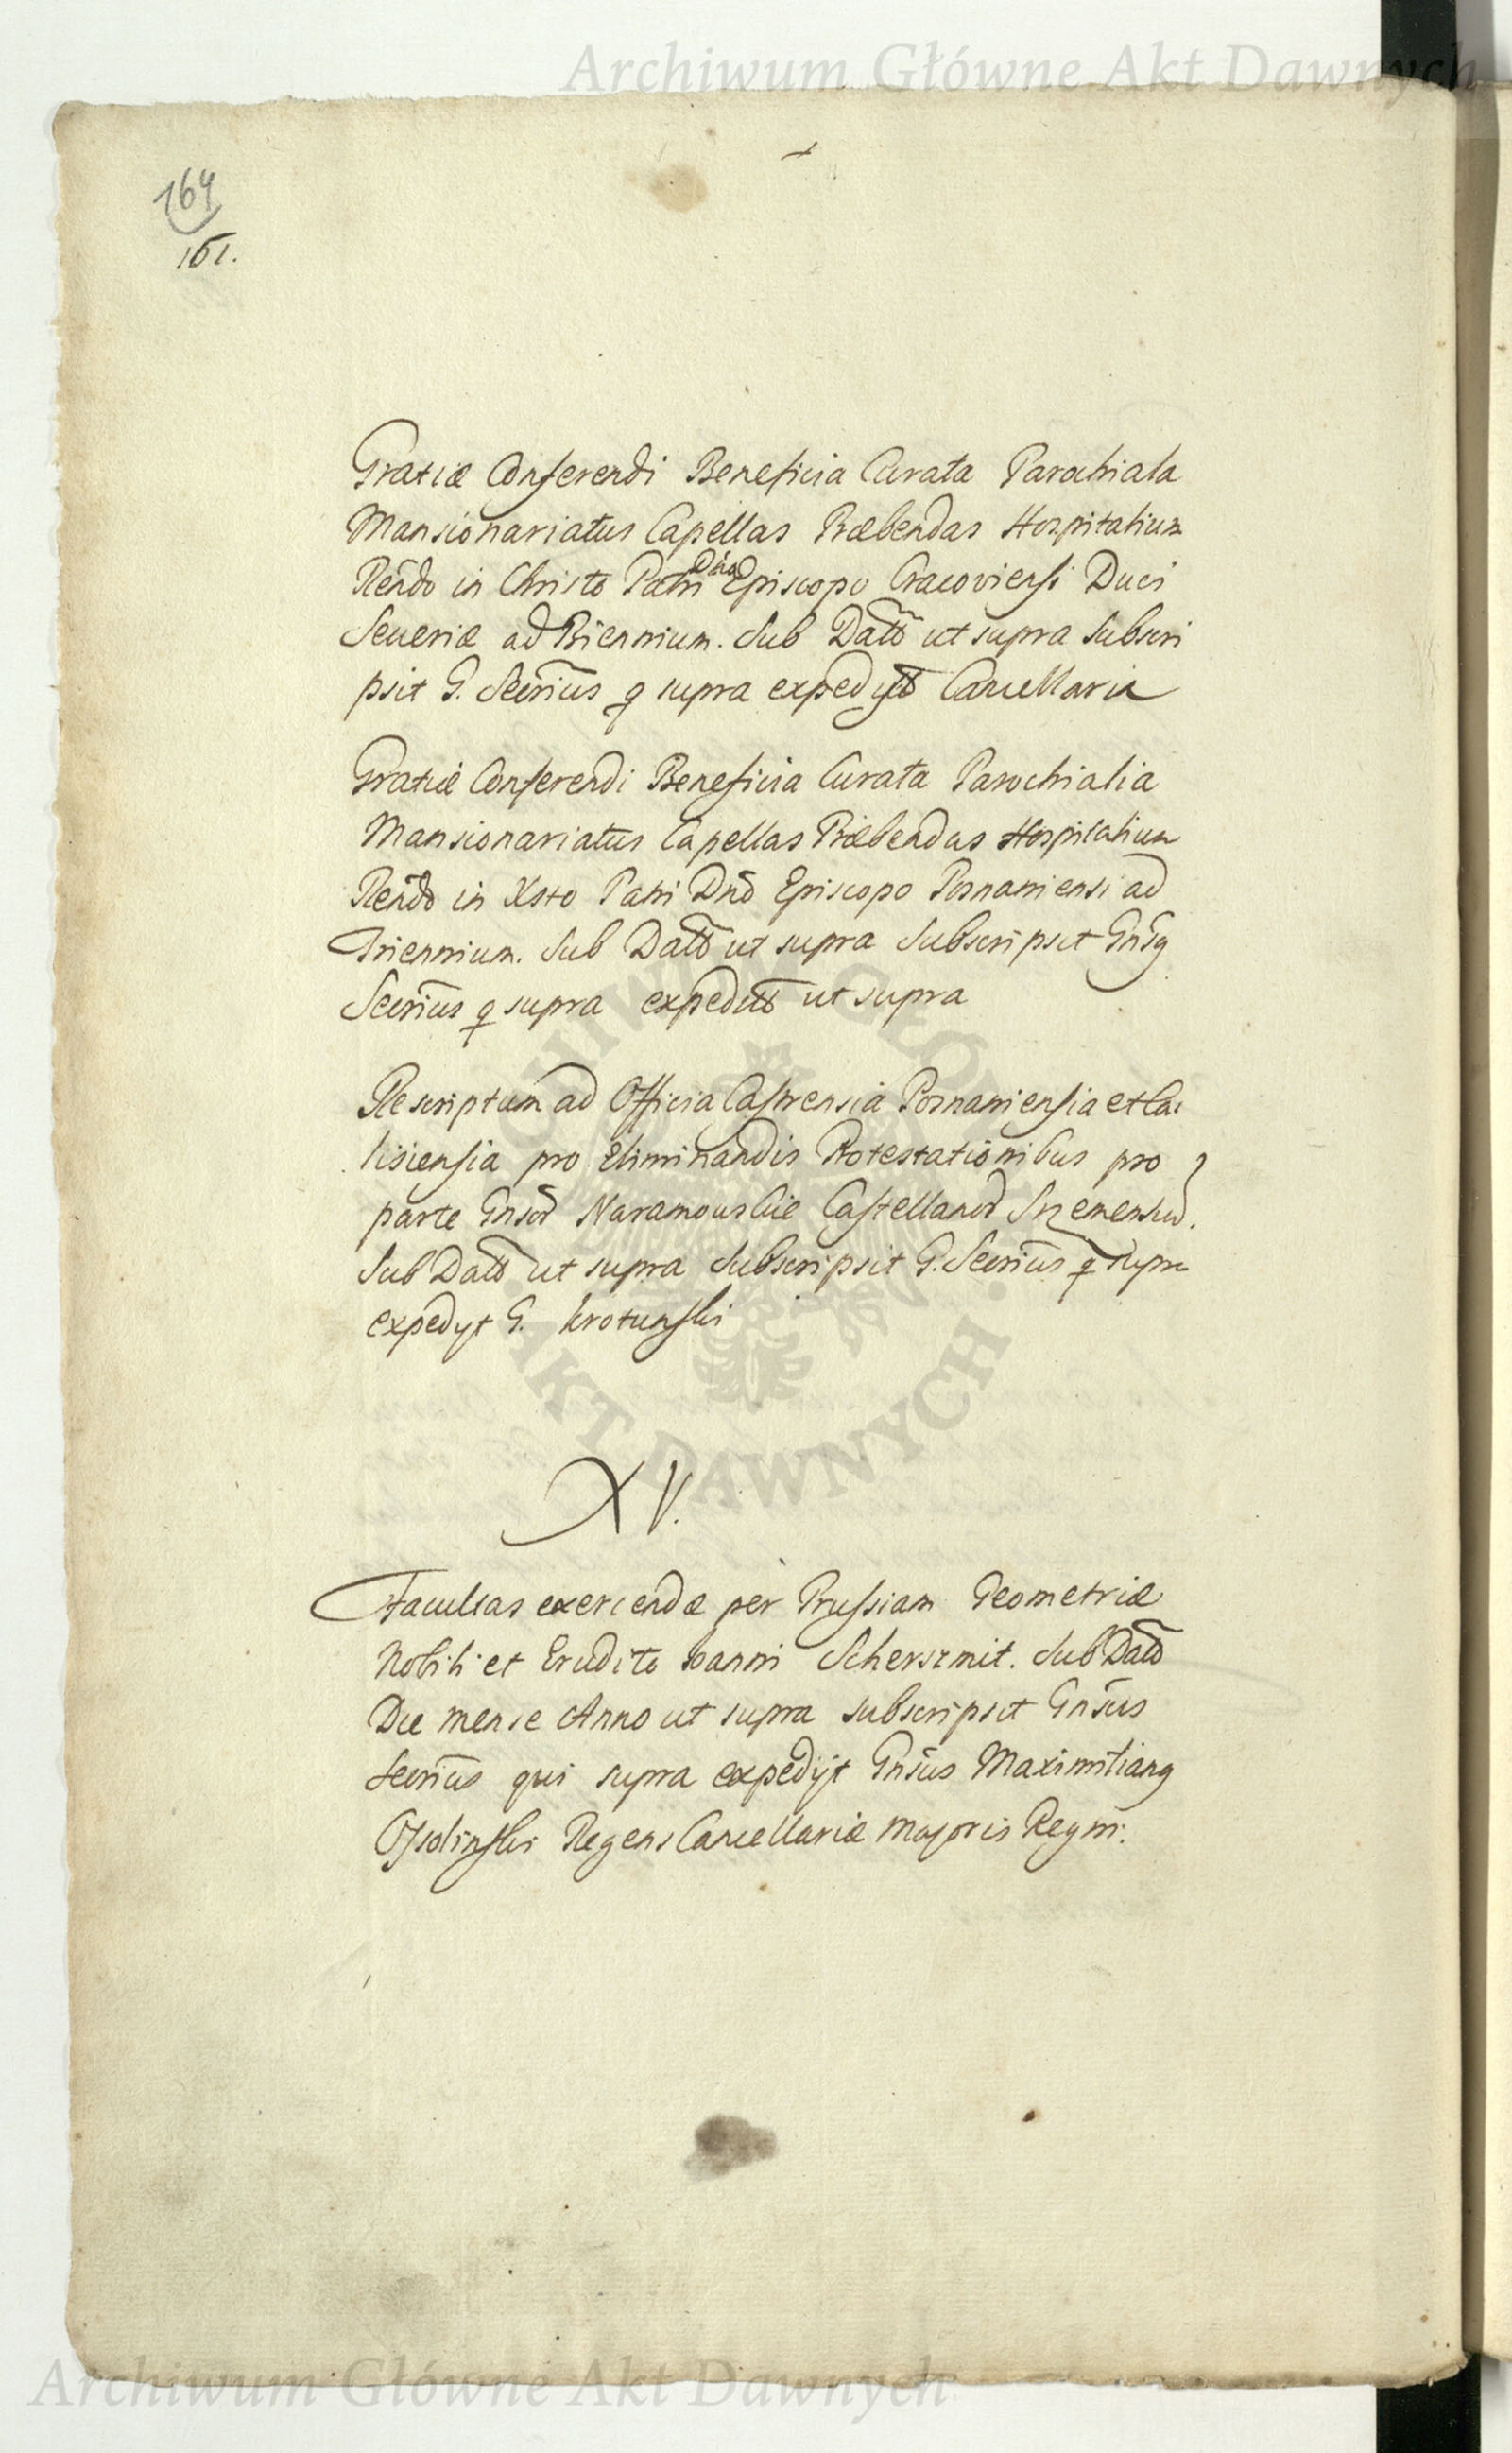 Archiwum Główne Akt Dawnych
164
161.
Gratiæ Conferendi Beneficia Curata Parochiala
Mansionariatus Capellas Præbendas Hospitalium
Rendo in Christo Patri Dño Episcopo Cracoviensi Duci
Severiæ ad Biennium. Sub Datto ut supra Subscri
psit G. Secrius q supra expedijt Cancellaria
Gratiæ Conferendi Beneficia Curata Parochialia
Mansionariatus Capellas Præbendas Hospitalium
Rendo in Xsto Patri Dnō Episcopo Posnaniensi ad
Triennium. Sub Datto ut supra Subscripsit Gnsq
Secrius q supra ut supra
Rescriptum ad Officia Castrensia Posnaniensia et Ca:
lisiensia pro Eliminandis Protestationibus pro
parte Naramouskie
Sub Datto ut supra Subscripsit G. Secrius q supra
expedyt G. Krotunski
XV.
Facultas exercendæ per Prussiam Geometriæ
Nobili et Erudito Ioanni Scherszmit. Sub Datō
Die mense Anno ut supra subscripsit Gnsus
Secrius qui supra expedijt Gnsus Maximilianq
Ossolinski Regens Cancellariæ Majoris Regni.
ARCHIWUM GŁÓWNE AKT DAWNYCH
Archiwum Główne Akt Dawnych